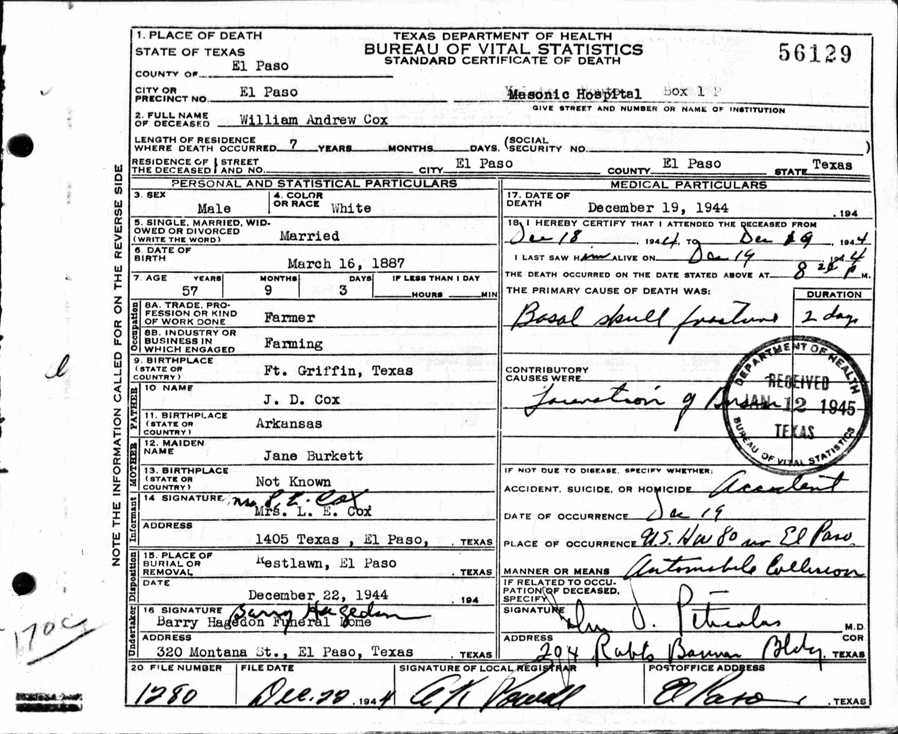 1. PLACE OF DEATH
STATE OF TEXAS
COUNTY OF El Paso
TEXAS DEPARTMENT OF HEALTH
BUREAU OF VITAL STATISTICS
STANDARD CERTIFICATE OF DEATH
56129
CITY OR PRECINCT NO. El Paso
Masonic Hospital Box 1
GIVE STREET AND NUMBER OR NAME OF INSTITUTION
2. FULL NAME OF DECEASED William Andrew Cox
LENGTH OF RESIDENCE WHERE DEATH OCCURRED 7 YEARS MONTHS DAYS. (SOCIAL SECURITY NO. )
RESIDENCE OF THE DECEASED STREET AND NO. CITY El Paso COUNTY El Paso STATE Texas
PERSONAL AND STATISTICAL PARTICULARS
3. SEX Male
4. COLOR OR RACE White
5. SINGLE, MARRIED, WIDOWED OR DIVORCED (WRITE THE WORD) Married
6. DATE OF BIRTH March 16, 1887
7. AGE YEARS 57 MONTHS 9 DAYS 3 IF LESS THAN 1 DAY HOURS MIN
Occupation
8A. TRADE, PROFESSION OR KIND OF WORK DONE Farmer
8B. INDUSTRY OR BUSINESS IN WHICH ENGAGED Farming
9. BIRTHPLACE (STATE OR COUNTRY) Ft. Griffin, Texas
FATHER
10 NAME J. D. Cox
11. BIRTHPLACE (STATE OR COUNTRY) Arkansas
MOTHER
12. MAIDEN NAME Jane Burkett
13. BIRTHPLACE (STATE OR COUNTRY) Not Known
Informant
14 SIGNATURE Mrs L. E. Cox
Mrs. L. E. Cox
ADDRESS 1405 Texas , El Paso, , TEXAS
Disposition
15. PLACE OF BURIAL OR REMOVAL Restlawn, El Paso , TEXAS
DATE December 22, 1944 , 194
Undertaker
16 SIGNATURE Barry Hagedon
Barry Hagedon Funeral Home
ADDRESS 320 Montana St., El Paso, Texas , TEXAS
MEDICAL PARTICULARS
17. DATE OF DEATH December 19, 1944 , 194
18. I HEREBY CERTIFY THAT I ATTENDED THE DECEASED FROM
Dec 18 , 1944 TO Dec 19 , 1944
I LAST SAW HIM ALIVE ON Dec 19 , 1944
THE DEATH OCCURRED ON THE DATE STATED ABOVE AT 8 P M.
THE PRIMARY CAUSE OF DEATH WAS: DURATION
Basal skull fracture 2 days
CONTRIBUTORY CAUSES WERE
Laceration of Brain
DEPARTMENT OF HEALTH
RECEIVED
JAN 12 1945
TEXAS
BUREAU OF VITAL STATISTICS
IF NOT DUE TO DISEASE, SPECIFY WHETHER:
ACCIDENT, SUICIDE, OR HOMICIDE Accident
DATE OF OCCURRENCE Dec 19
PLACE OF OCCURRENCE U.S. Hw 80 nr El Paso
MANNER OR MEANS Automobile Collision
IF RELATED TO OCCUPATION OF DECEASED, SPECIFY
SIGNATURE M.D.
COR
ADDRESS 204 Bldg TEXAS
20 FILE NUMBER 1280
FILE DATE Dec. 22 , 1944
SIGNATURE OF LOCAL REGISTRAR
POSTOFFICE ADDRESS El Paso , TEXAS
NOTE THE INFORMATION CALLED FOR ON THE REVERSE SIDE
170c